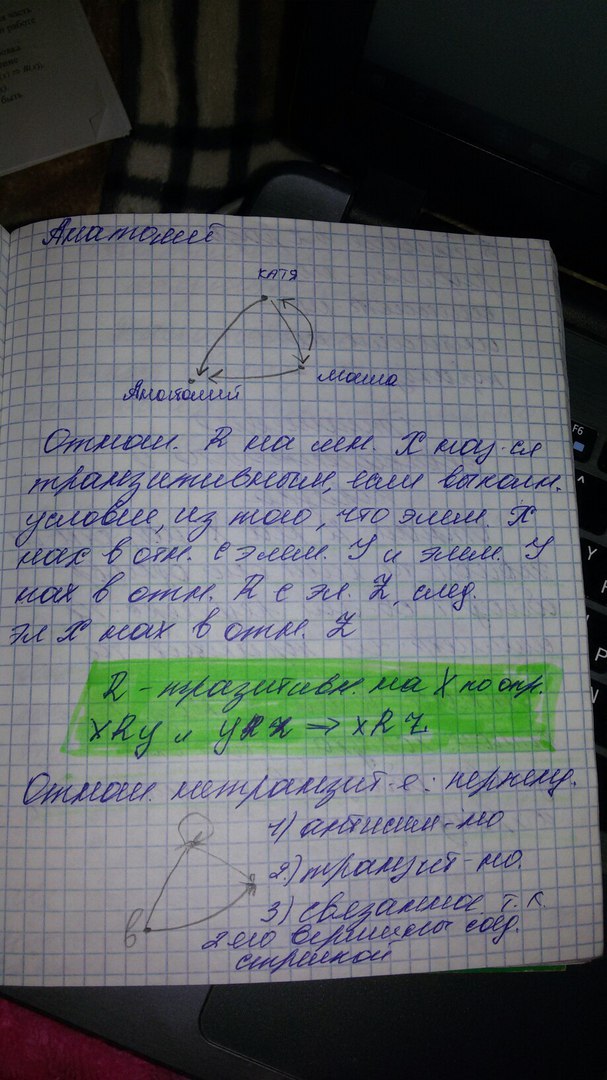 Анатолий
КАТЯ
Анатолий
маша
Отнош. R на мн. X наз-ся
транзитивным, если выполн.
условие, из того, что элем. X
нах в отн. с элем. Y и элем. Y
нах в отн. R с эл. Z, след.
эл X нах в отн. Z
R - тразитивн. на X по опр.
XRy и yRz ⇒ xRZ
Отнош. нетранзит-е:
1) антисим-но
2) транзит-но.
3) связанное т.к.
2 его вершины соед.
стрелкой
в
F6
Y
P